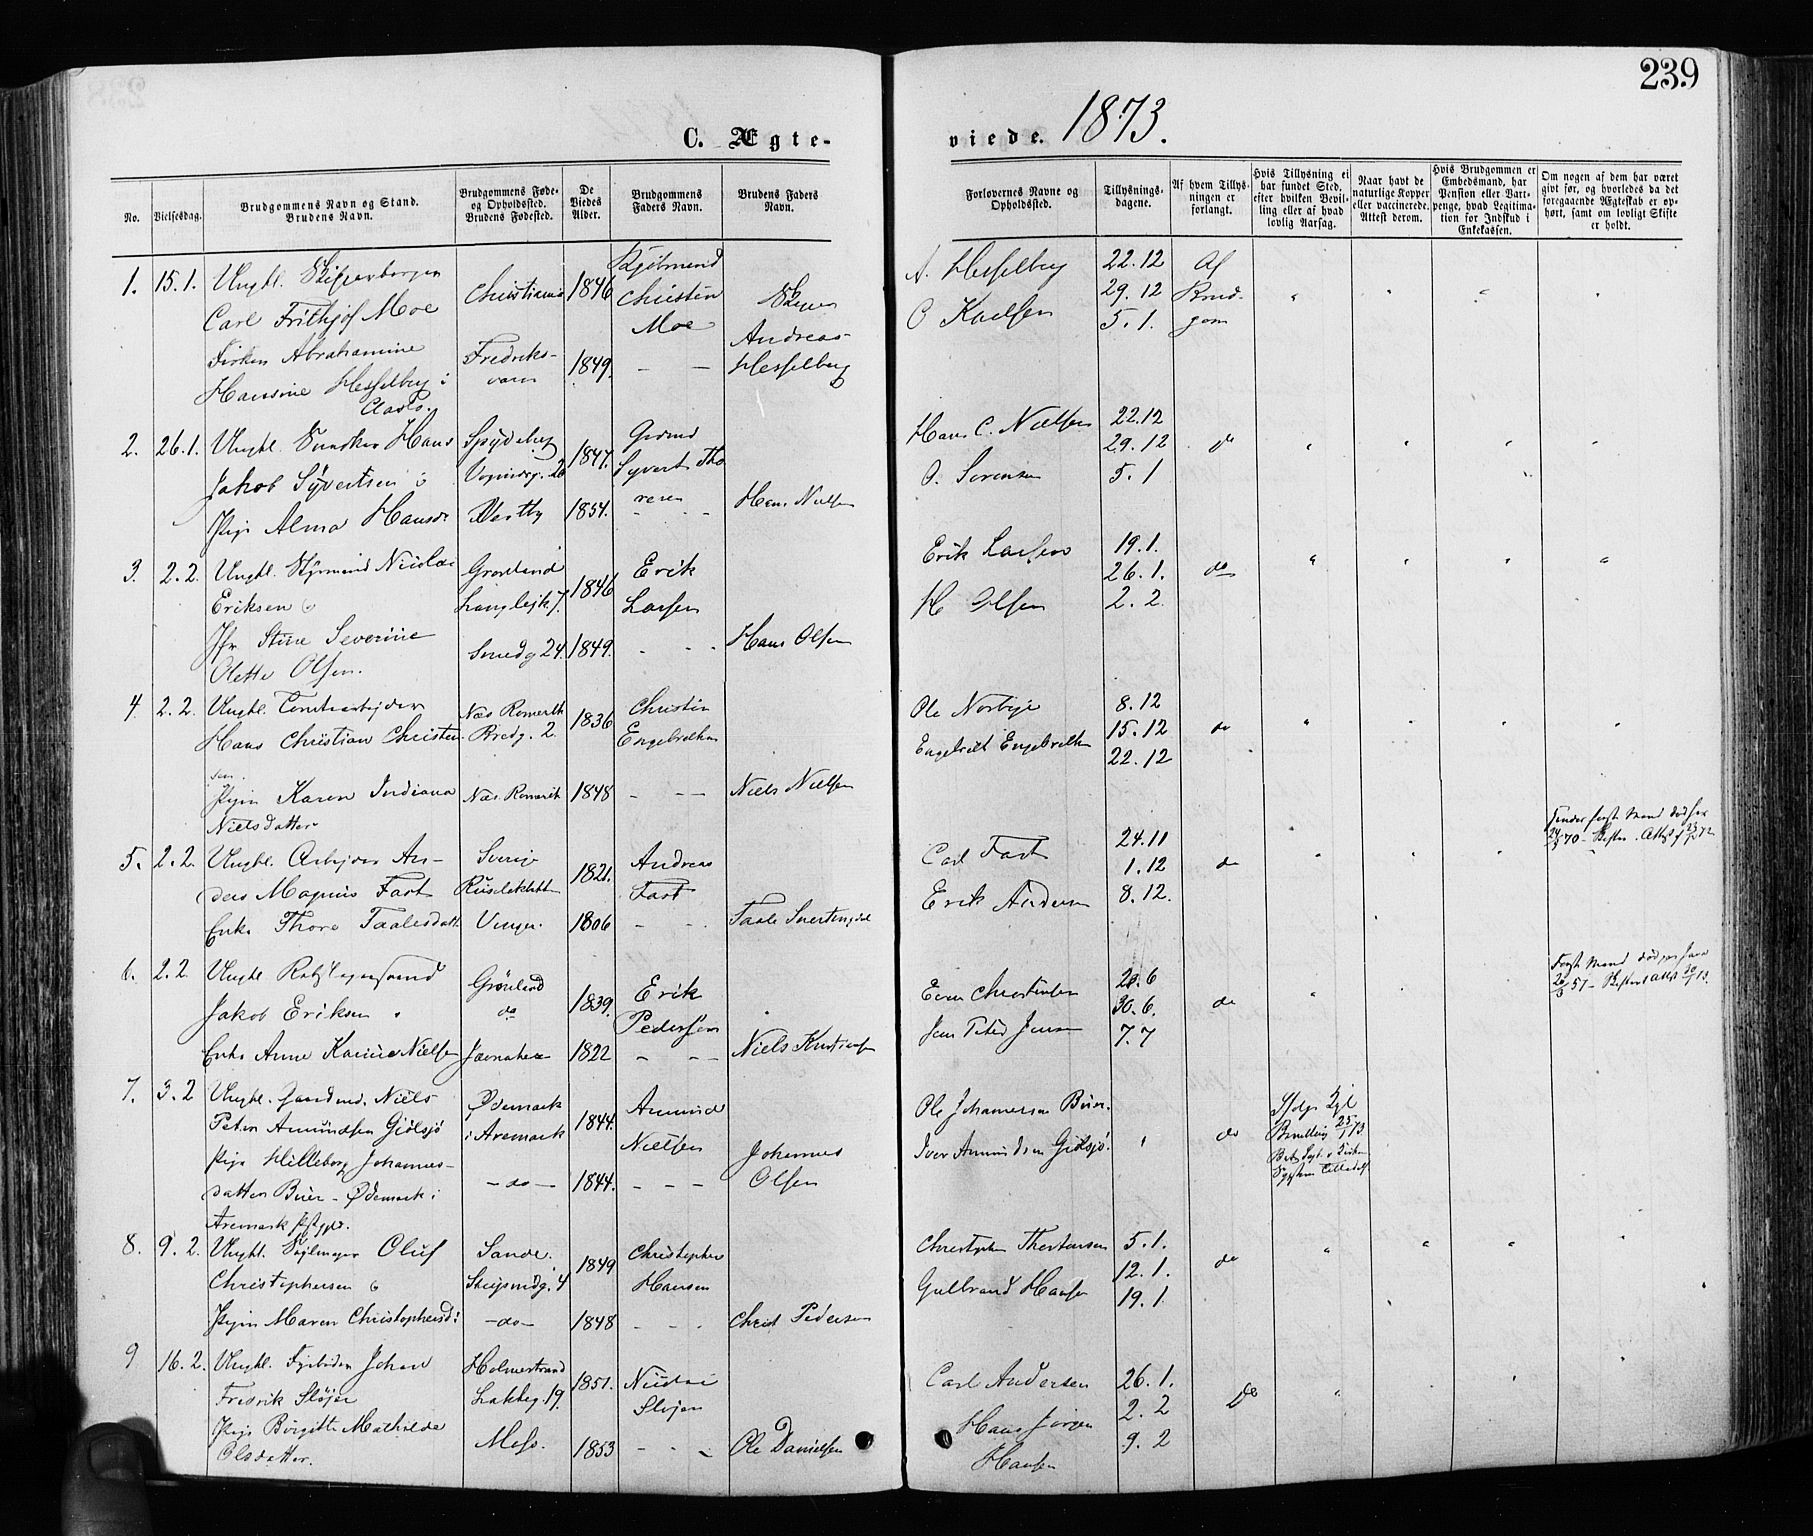 239
C. Ægte-
viede. 1873.
No.
Vielsesdag.
Brudgommens Navn og Stand.
Brudens Navn.
Brudgommens Føde-
og Opholdssted.
Brudens Fødested.
De
Viedes
Alder.
Brudgommens
Faders Navn.
Brudens Faders
Navn.
Forlovernes Navne og
Opholdssted.
Tillysnings-
dagene.
Af hvem Tillys-
ningen er
forlangt.
Hvis Tillysning ei
har fundet Sted,
efter hvilken Bevil-
ling eller af hvad
lovlig Aarsag.
Naar havt de
naturlige Kopper
eller vaccinerede.
Attest derom.
Hvis Brudgommen er
Embedsmand, har
Pension eller Vart-
penge, hvad Legitima-
tion for Indskud i
Enkekassen.
Om nogen af dem har været
givt før, og hvorledes da det
foregaaende Ægteskab er op-
hørt, samt om lovligt Skifte
er holdt.
1. 15.1. Ungkl.
Carl Frithjof Moe
Frøken Abrahamine
Hansine Hesselberg
Christiania
Fredriks-
værn
1846
1849.
Christen
Moe
Andreas
Hesselberg
A. Hesselberg
O
22.12
29.12
5.1.
Af
Brud-
gom
2. 26.1. Ungkl. Hans
Jakob Syvertsen
Pige Alma Hansd.
Spydeberg
1847.
1854.
Syvert Tho
resen
Hans Nielsen
Hans C. Nielsen
O. Sorensen
22.12
29.12
5.1
do
3. 2.2. Ungkl. Styrmand Nicolai
Eriksen
Jfr Stine Severine
Olette Olsen.
Grønland
Langlejk 7.
Smedg 24.
1846
1849.
Erik
Larsen
Hans Olsen
Erik Larsen
H Olsen
19.1.
26.1.
2.2.
do
4 2.2. Ungkl. Tomtearbejder
Hans Christian Christen
sen.
Pigen Karen Indiana
Nielsdatter
Næs Romerik
Bredg. 2.
Næs Romerik
1836
1848
Christen
Engebrethsen
Niels Nielsen
Ole Norbye
Engebret Engebrethsen
8.12
15.12
22.12
do
5. 2.2. Ungkl. Arbejder An-
ders Magnus Fast
Enke Thore Taalesdatt.
Sverige
Ruselökbak
Vinger.
1821.
1806
Andreas
Fast
Carl Fast
Erik Andersen
24.11
1.12
8.12.
do
6. 2.2 Ungkl.
Jakob Eriksen
Enke Anne Karine Nielsen
Grønland
do
1839.
1822
Erik
Pedersen
Niels
Even Christensen
Jens Peter Jensen
30.6.
7.7
do
7. 3.2 Ungkl. Gaardmd. Niels
Peter Amundsen Gjølsjø
Pige Hilleborg Johannes-
datter Buer - Ødemark i
Aremark
Ødemark
i Aremark
-do-
1844.
1844.
Amund
Nielsen
Johannes
Olsen
Ole Johannesen Buer.
Iver Amundsen Gjølsjø.
do
Ifølge Kgl
8. 9.2. Ungkl. Sejlmager Oluf
Christophersen
Pigen Maren Christophersd:
Sande.
-do-
1849
1848
Christopher
Hansen
Christ Pedersen
Gulbrand Hansen
5.1.
12.1.
19.1.
do
9 16.2. Ungkl. Fyrbøder Johan
Fredrik Sløjer
Pige Birgitte Mathilde
Olsdatter.
Holmestrand
Lakkeg. 19.
Moss.
1851.
1853
Nicolai
Sløjer
Ole Danielsen
Carl Andersen
Hans Jørgen
Hansen
26.1.
2.2
9.2
do